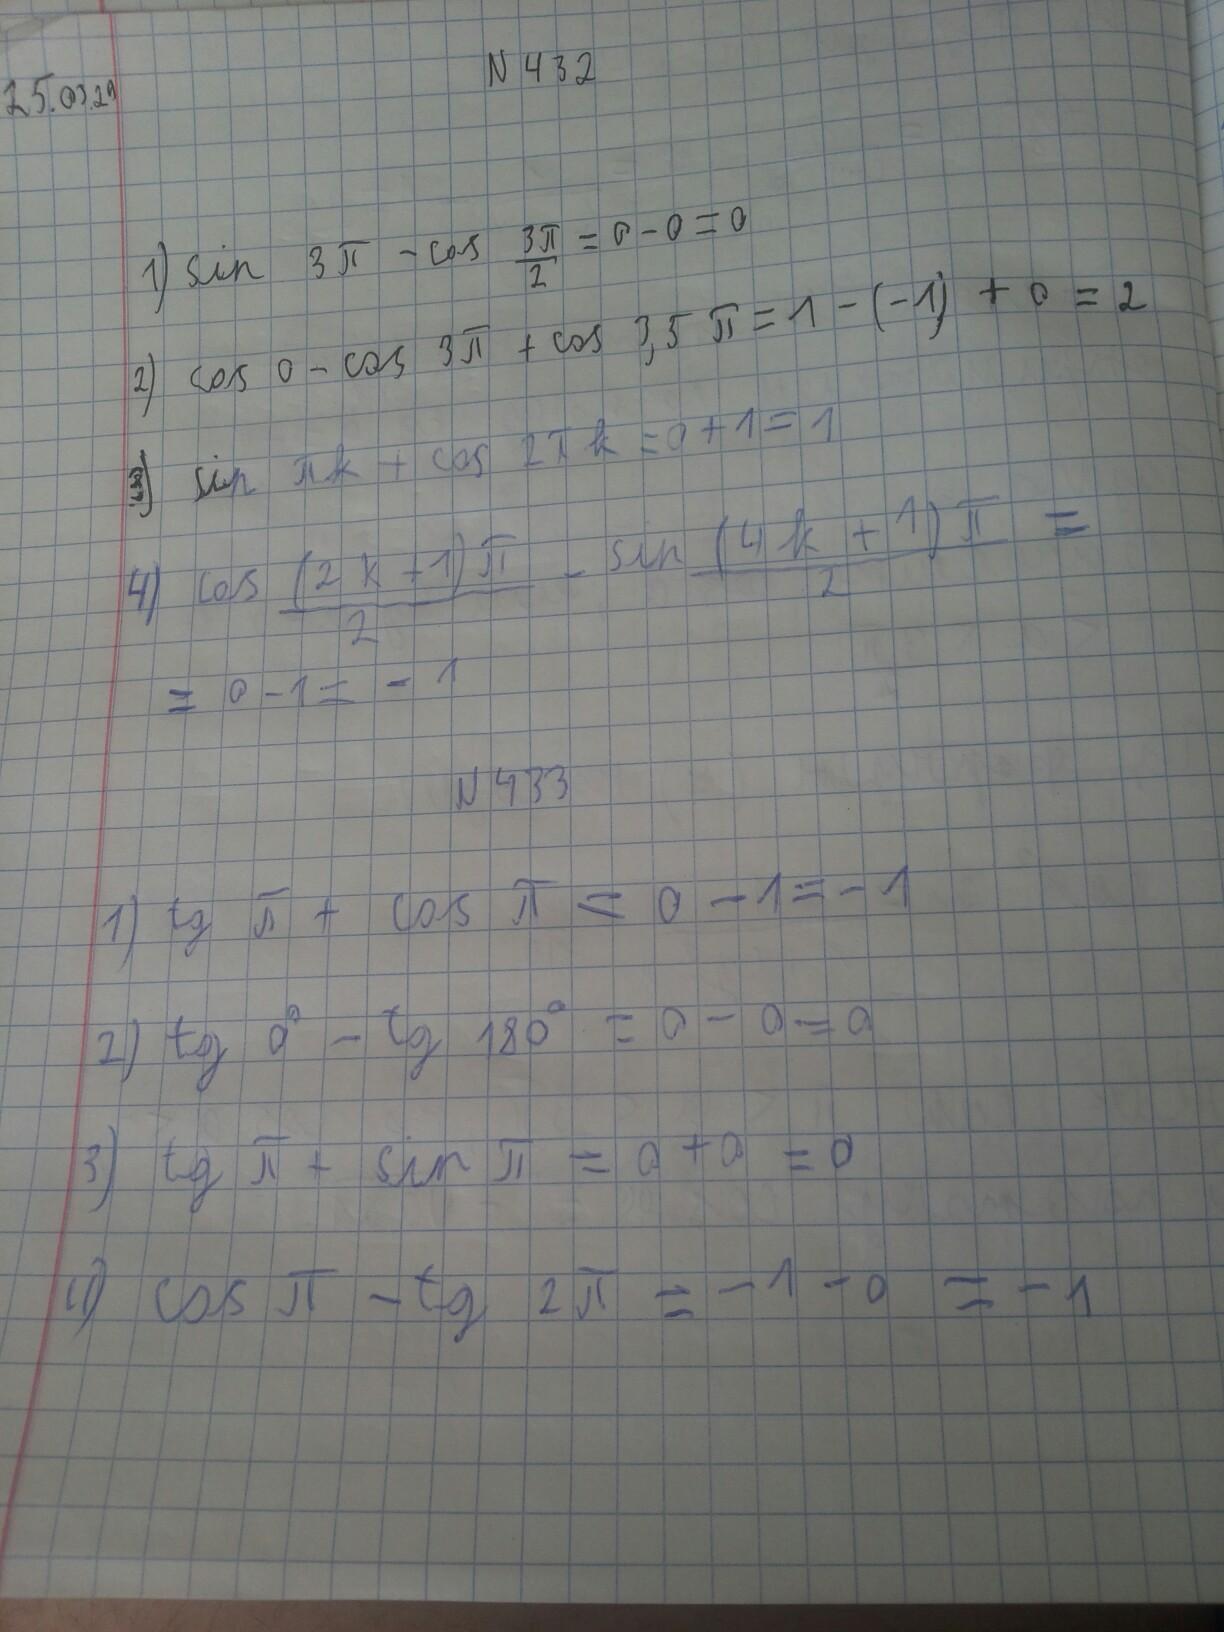 25.03.29
N 432
1) sin 3π - cos 3π/2 = 0 - 0 = 0
2) cos 0 - cos 3π + cos 3,5 π = 1 - (-1) + 0 = 2
3) sin πk + cos 2πk = 0 + 1 = 1
4) cos (2k+1)π/2 - sin (4k+1)π/2 =
= 0 - 1 = - 1
N 433
1) tg π + cos π = 0 - 1 = - 1
2) tg 0° - tg 180° = 0 - 0 = 0
3) tg π + sin π = 0 + 0 = 0
4) cos π - tg 2π = - 1 - 0 = - 1